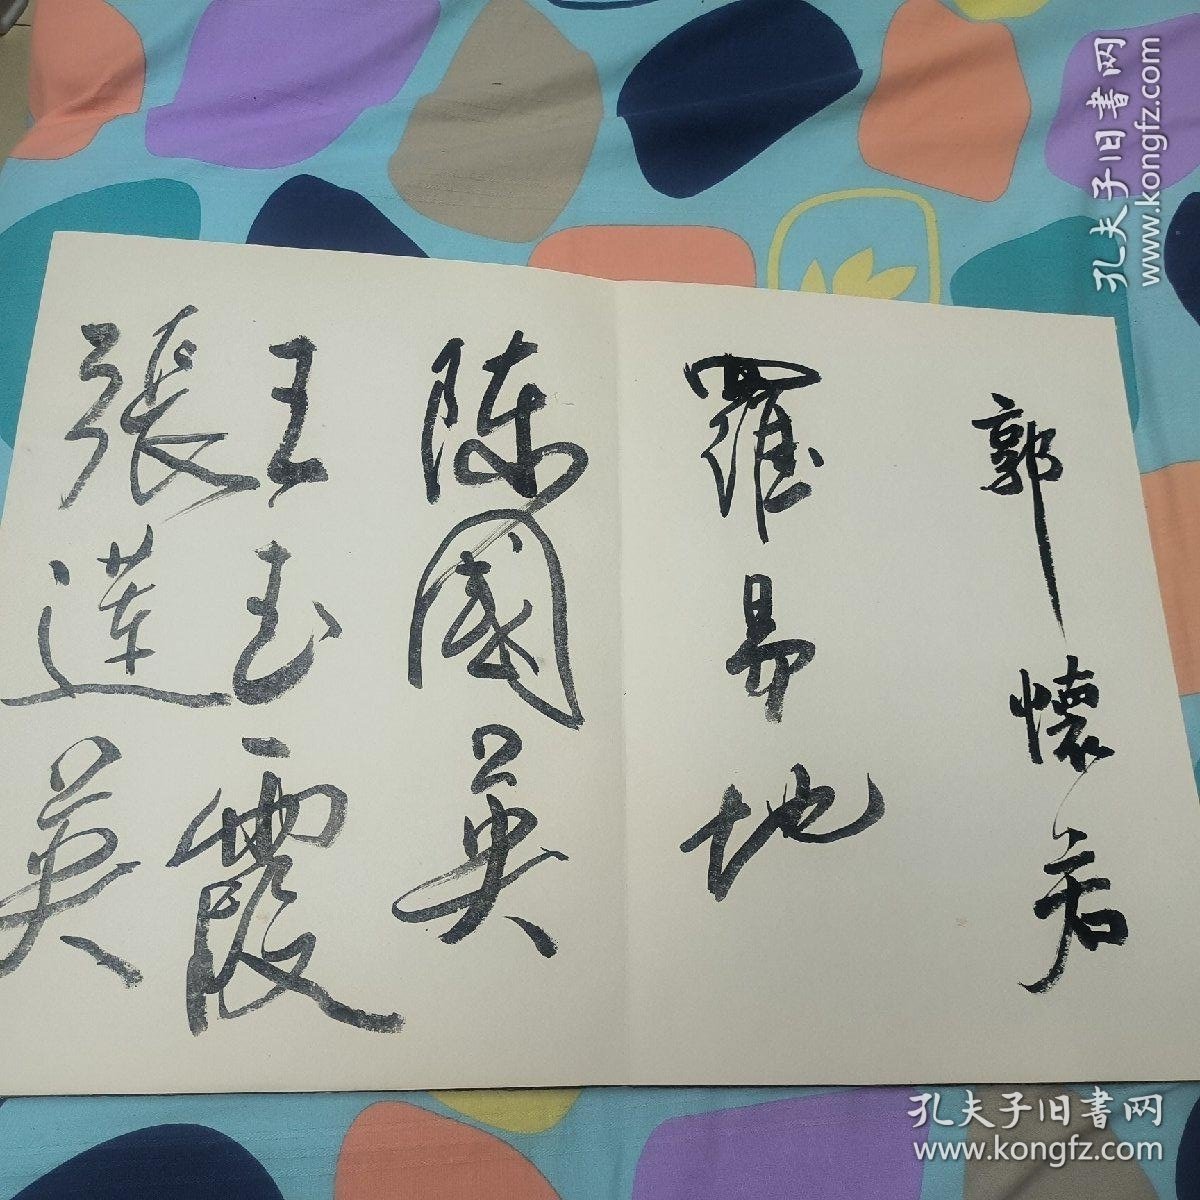 郭懷若
羅易地
陈國英
王玉霞
張蓮英
孔夫子旧书网
www.kongfz.com
孔夫子旧书网
www.kongfz.com